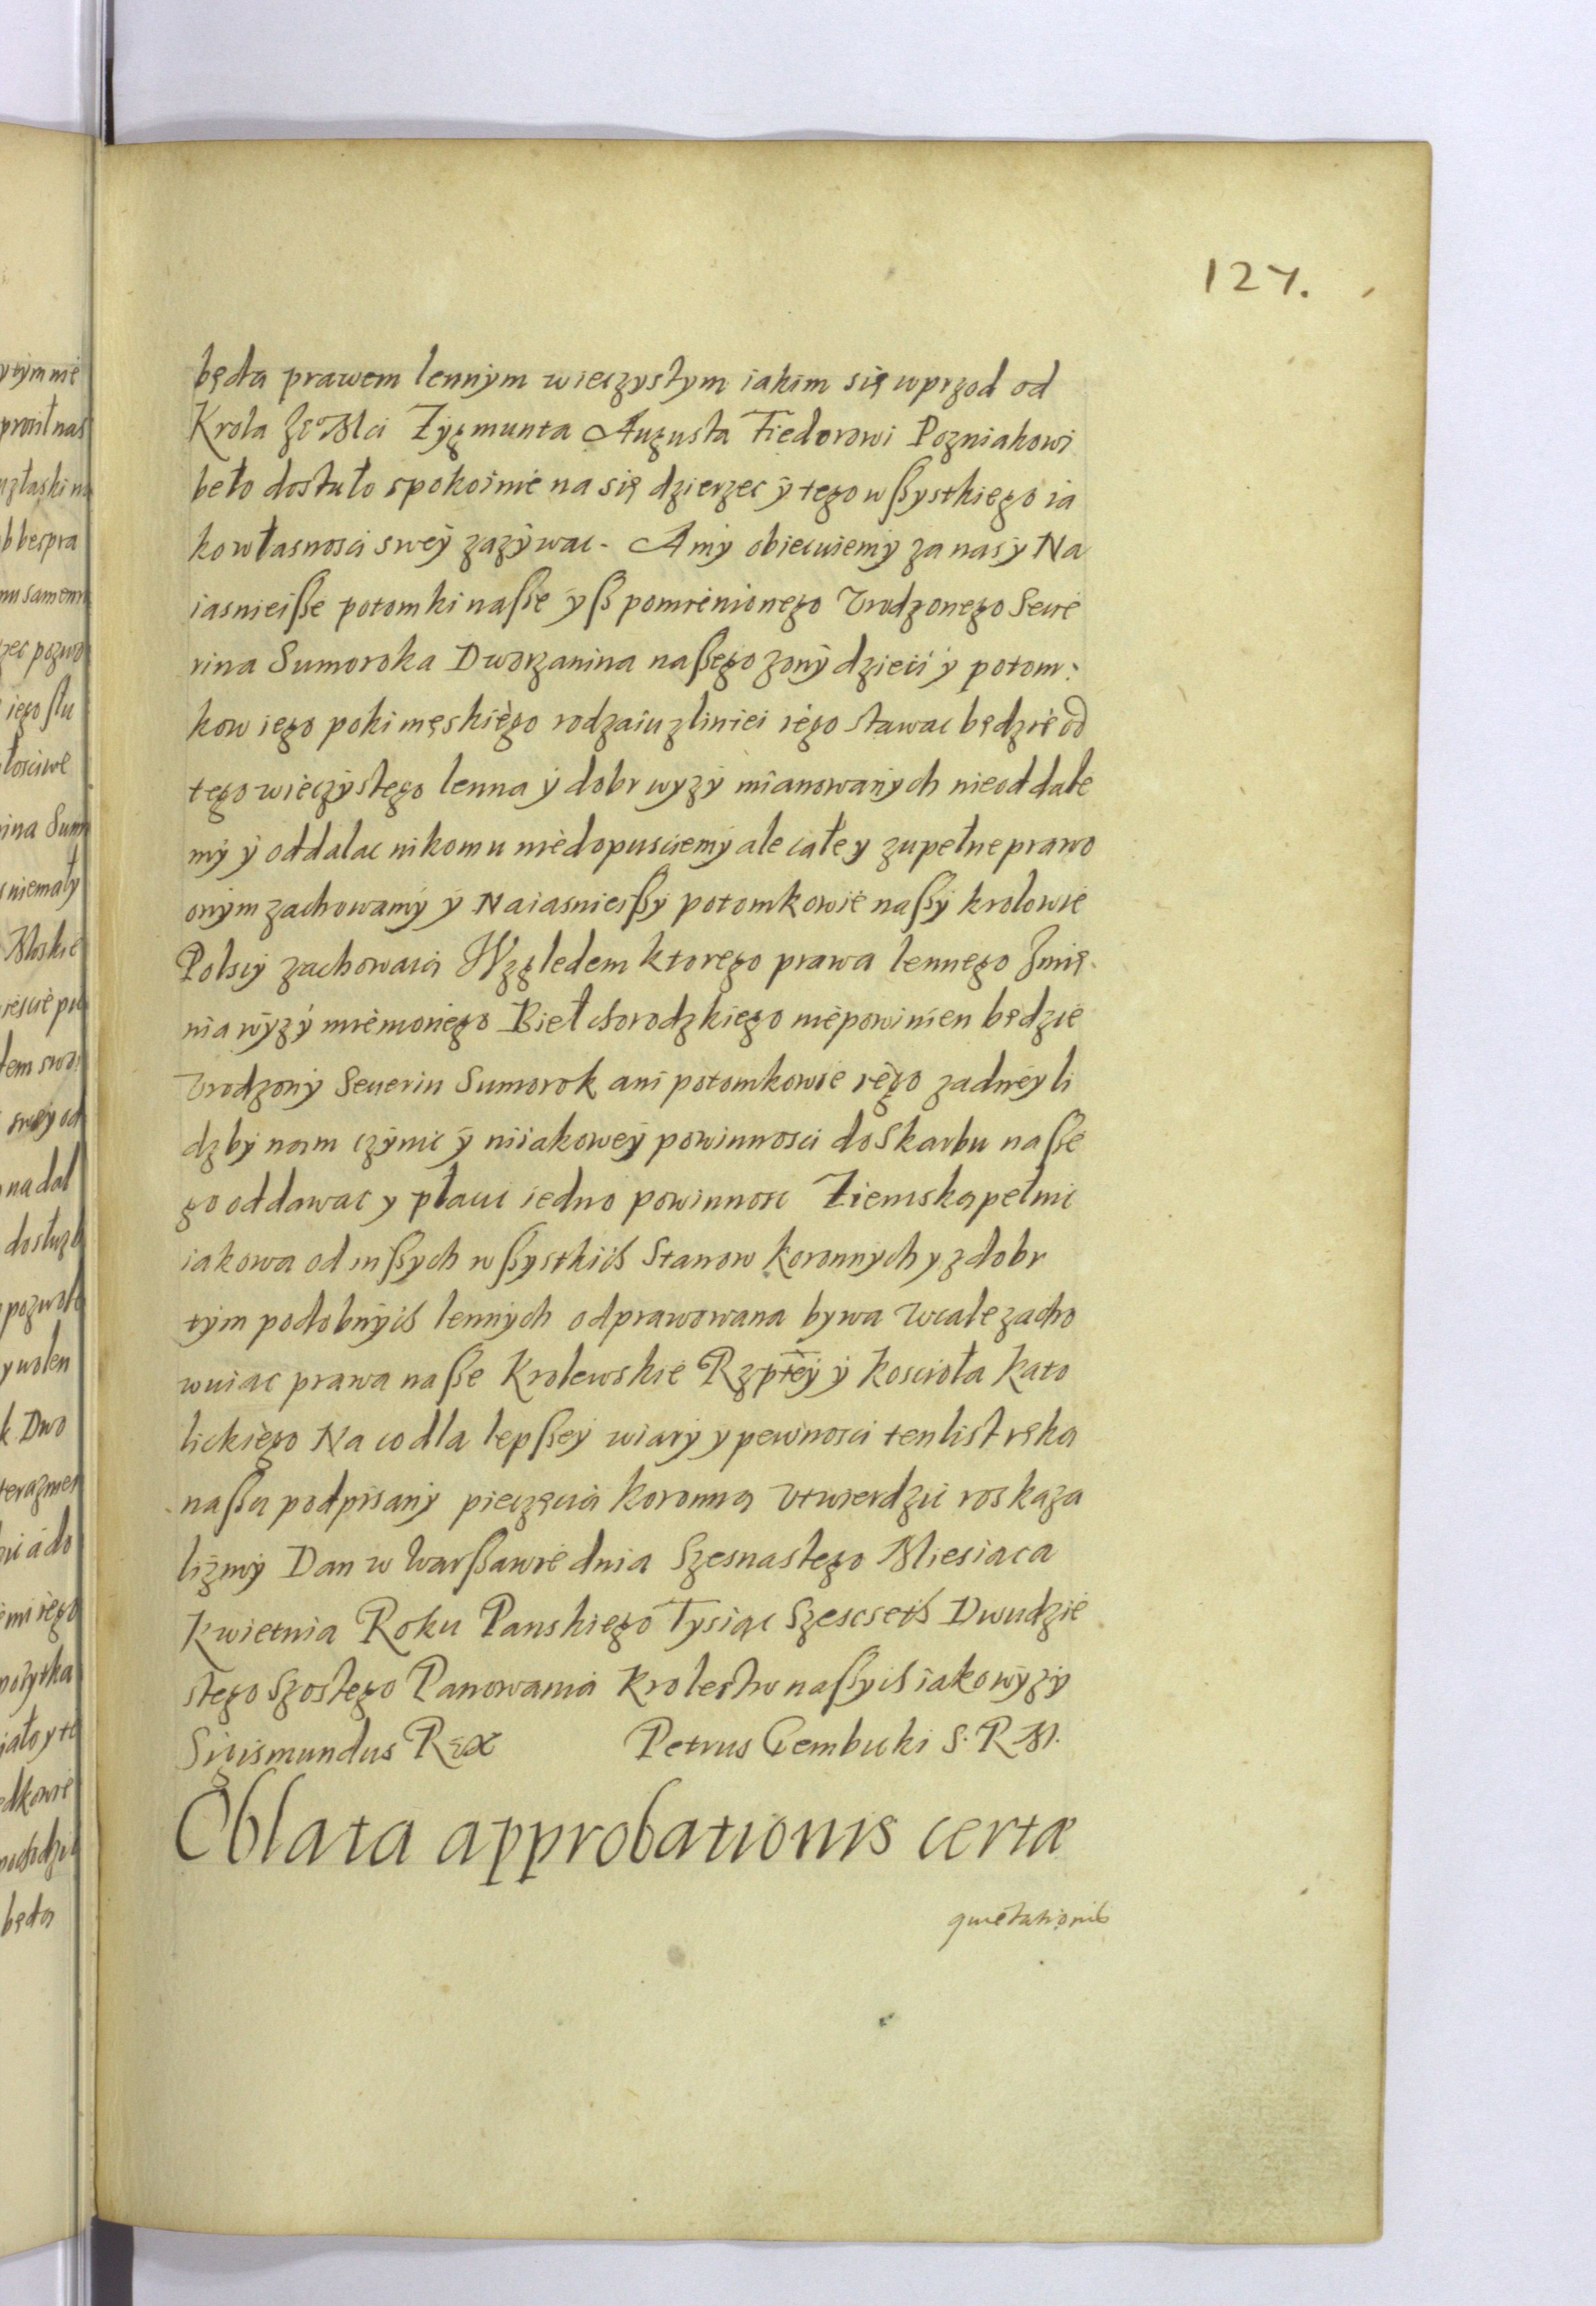 127.
będą prawem lennym wieczystym iakim się wprzod od
Krola Je° Mci Zygmunta Augusta Fiedorowi Pozniakowi
beło dostało spokoinie na się dzierzec ÿ tego wßystkiego ia
ko własnosci sweÿ zazÿwac. A mÿ obiecuiemÿ za nas ÿ Na
iasnieiße potomki naße ÿß pomienionego Vrodzonego Sewe
rina Sumoroka Dworzanina naßego zonÿ dzieci ÿ potom:
kow iego poki męskiego rodzaiu z liniei iego stawac będzie od
tego wieczÿstego lenna ÿ dobr wyzÿ mianowanÿch nieoddale
mÿ ÿ oddalac nikomu niedopusciemÿ ale całe y zupełne prawo
onÿm zachowamÿ ÿ Naiasnieißÿ potomkowie naßÿ krolowie
Polscÿ zachowaią Względem ktorego prawa lennego Imię
nia wÿzÿ mienionego Biełchorodzkiego niepowinien będzie
Vrodzonÿ Seuerin Sumorok ani potomkowie iego zadneÿ li
dzbÿ nam czÿnic ÿ niiakoweÿ powinnosci do Skarbu naße
go oddawac y płacic iedno powinnosc Ziemską pełnic
iakowa od inßych wßystkich Stanow Koronnÿch y z dobr
tÿm podobnÿch lennÿch odprawowana bywa wcale zacho
wuiac prawa naße Krolewskie Rzpteÿ ÿ Koscioła Kato
lickiego Na co dla lepßeÿ wiarÿ y pewnosci ten list ręką
naßą podpisanÿ pieczęcią Koronną Vtwierdzic roskaza
lizmÿ Dan w Warßawie dnia Szesnastego Miesiaca
Kwietnia Roku Panskiego Tysiąc Szescseth Dwudzie
stego Szostego Panowania Krolestw naßych iako wÿzÿ
Sigismundus Rex Petrus Gembicki S. R. M.
Oblata approbationis certæ
quietationis